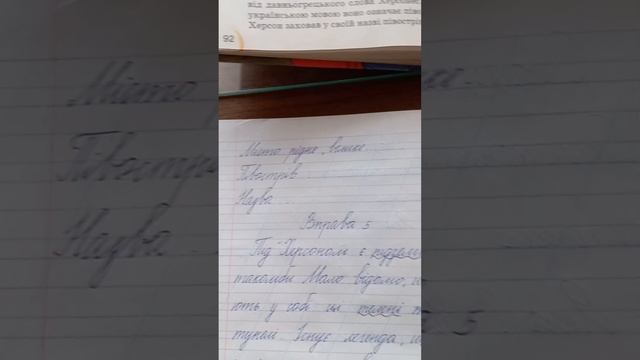 від давньогрецького слова Херсонес,
українською мовою воно означає півос
Херсон заховав у своїй назві півострів
92
Місто рідне, велике......
Півострів...
Назва ...
Вправа 5
Під Херсоном є підземні
такомби Мало відомо,
ють у собі ці темні
тунелі. Існує легенда,